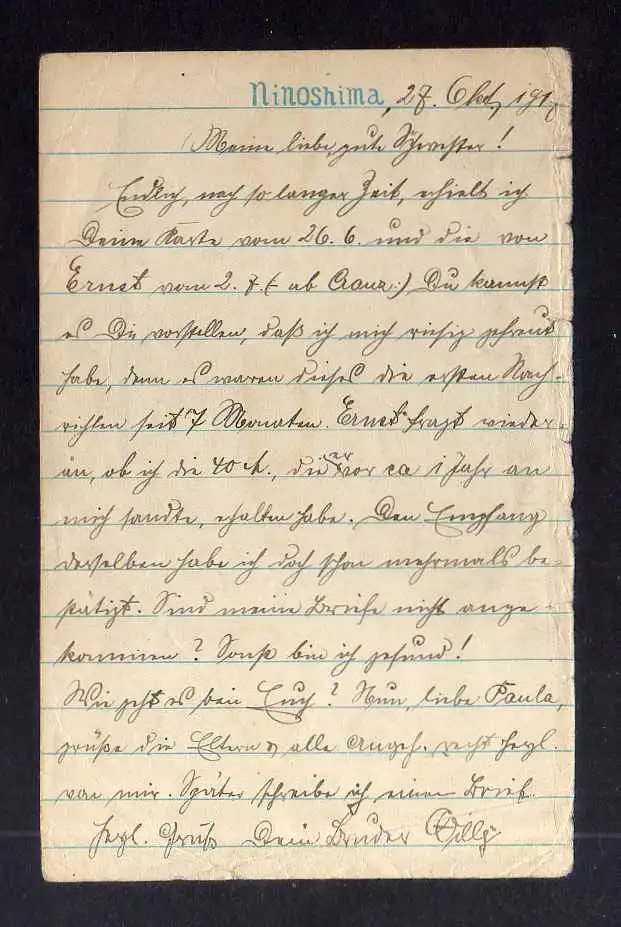 Ninoshima, 27. Okt. 191
Meine liebe, gute Schwester!
Endlich, nach so langer Zeit, erhielt ich
Deine Karte vom 26. 6. und die von
Ernst vom 2. 7. (- ab Cranz:) Du kannst
es Dir vorstellen, daß ich mich riesig gefreut
habe, denn es waren dieses die ersten Nach-
richten seit 7 Monaten. Ernst fragt wieder-
an, ob ich die 40 M., die er vor ca 1 Jahr an
mich sandte, erhalten habe. Den Empfang
derselben habe ich doch schon mehrmals be-
stätigt. Sind meine Briefe nicht ange-
kommen? Sonst bin ich gesund!
Wie geht es bei Euch? Nun, liebe Paula,
grüße die Eltern & alle Angeh. recht herzl.
von mir. Später schreibe ich einen Brief.
Herzl. Gruß Dein Bruder Willy